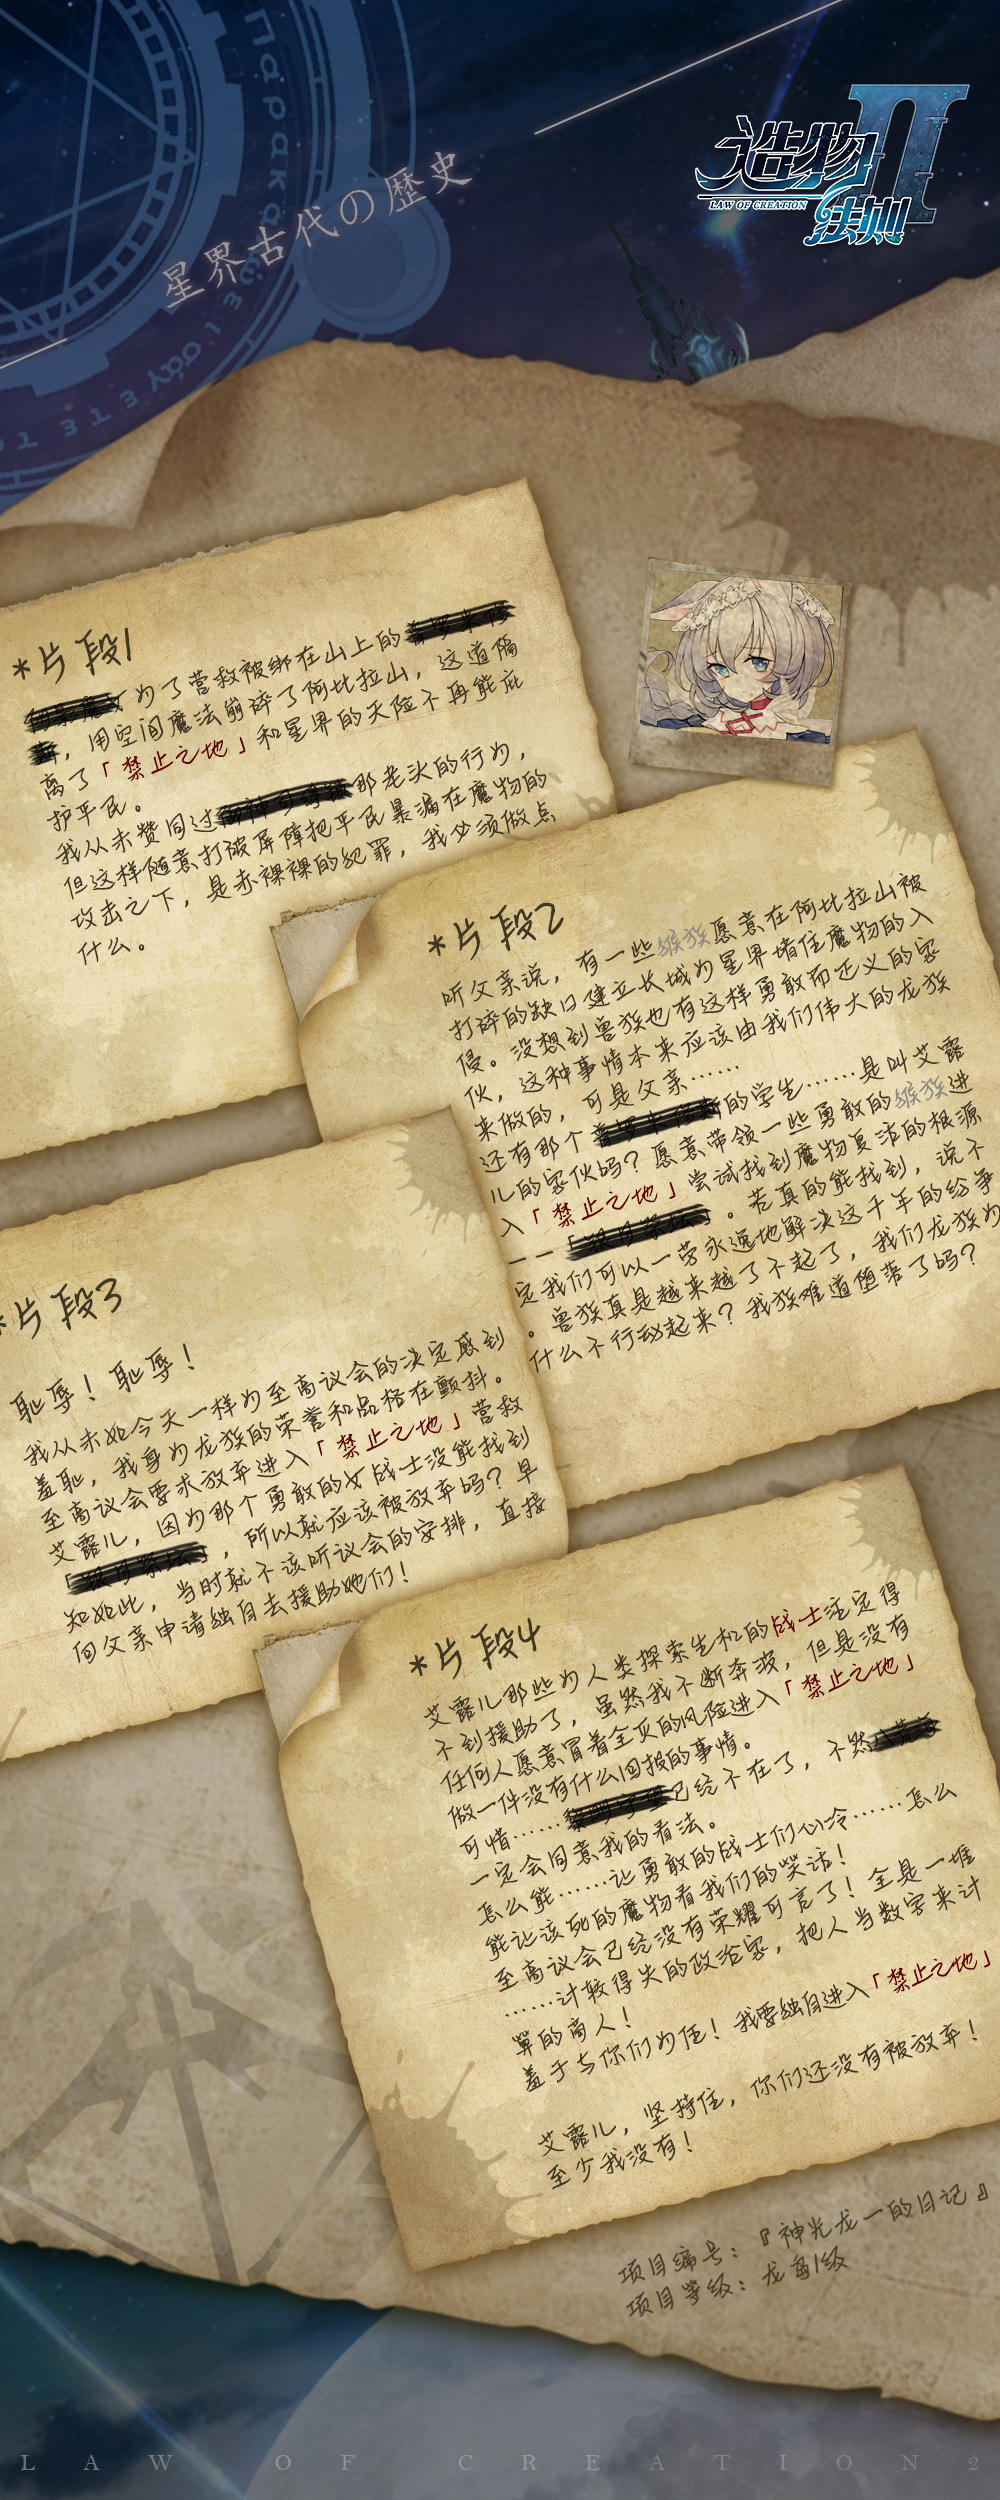 造物法则II
LAW OF CREATION
星界古代の歴史
*片段1
为了营救被绑在山上的
，用空间魔法崩碎了阿比拉山，这道隔
离了「禁止之地」和星界的天险不再能庇
护平民。
我从未赞同过 那老头的行为，
但这样随意打破屏障把平民暴漏在魔物的
攻击之下，是赤裸裸的犯罪，我必须做点
什么。
*片段2
听父亲说，有一些猴族愿意在阿比拉山被
打碎的缺口建立长城为星界堵住魔物的入
侵。没想到兽族也有这样勇敢而正义的家
伙，这种事情本来应该由我们伟大的龙族
来做的，可是父亲……
还有那个 的学生……是叫艾露
儿的家伙吗？愿意带领一些勇敢的猴族进
入「禁止之地」尝试找到魔物复活的根源
——「 」。若真的能找到，说不
定我们可以一劳永逸地解决这千年的纷争
。兽族真是越来越了不起了，我们龙族为
什么不行动起来？我族难道堕落了吗？
*片段3
耻辱！耻辱！
我从未如今天一样为至高议会的决定感到
羞耻，我身为龙族的荣誉和品格在颤抖。
至高议会要求放弃进入「禁止之地」营救
艾露儿，因为那个勇敢的女战士没能找到
「 」，所以就应该被放弃吗？早
知如此，当时就不该听议会的安排，直接
向父亲申请独自去援助她们！
*片段4
艾露儿那些为人类探索生机的战士注定得
不到援助了，虽然我不断奔波，但是没有
任何人愿意冒着全灭的风险进入「禁止之地」
做一件没有什么回报的事情。
可惜…… 已经不在了，不然
一定会同意我的看法。
怎么能……让勇敢的战士们心冷……怎么
能让该死的魔物看我们的笑话！
至高议会已经没有荣耀可言了！全是一堆
……计较得失的政治家，把人当数字来计
算的商人！
羞于与你们为伍！我要独自进入「禁止之地」
艾露儿，坚持住，你们还没有被放弃！
至少我没有！
项目编号：『神光龙一的日记』
项目等级：龙岛1级
LAW OF CREATION2